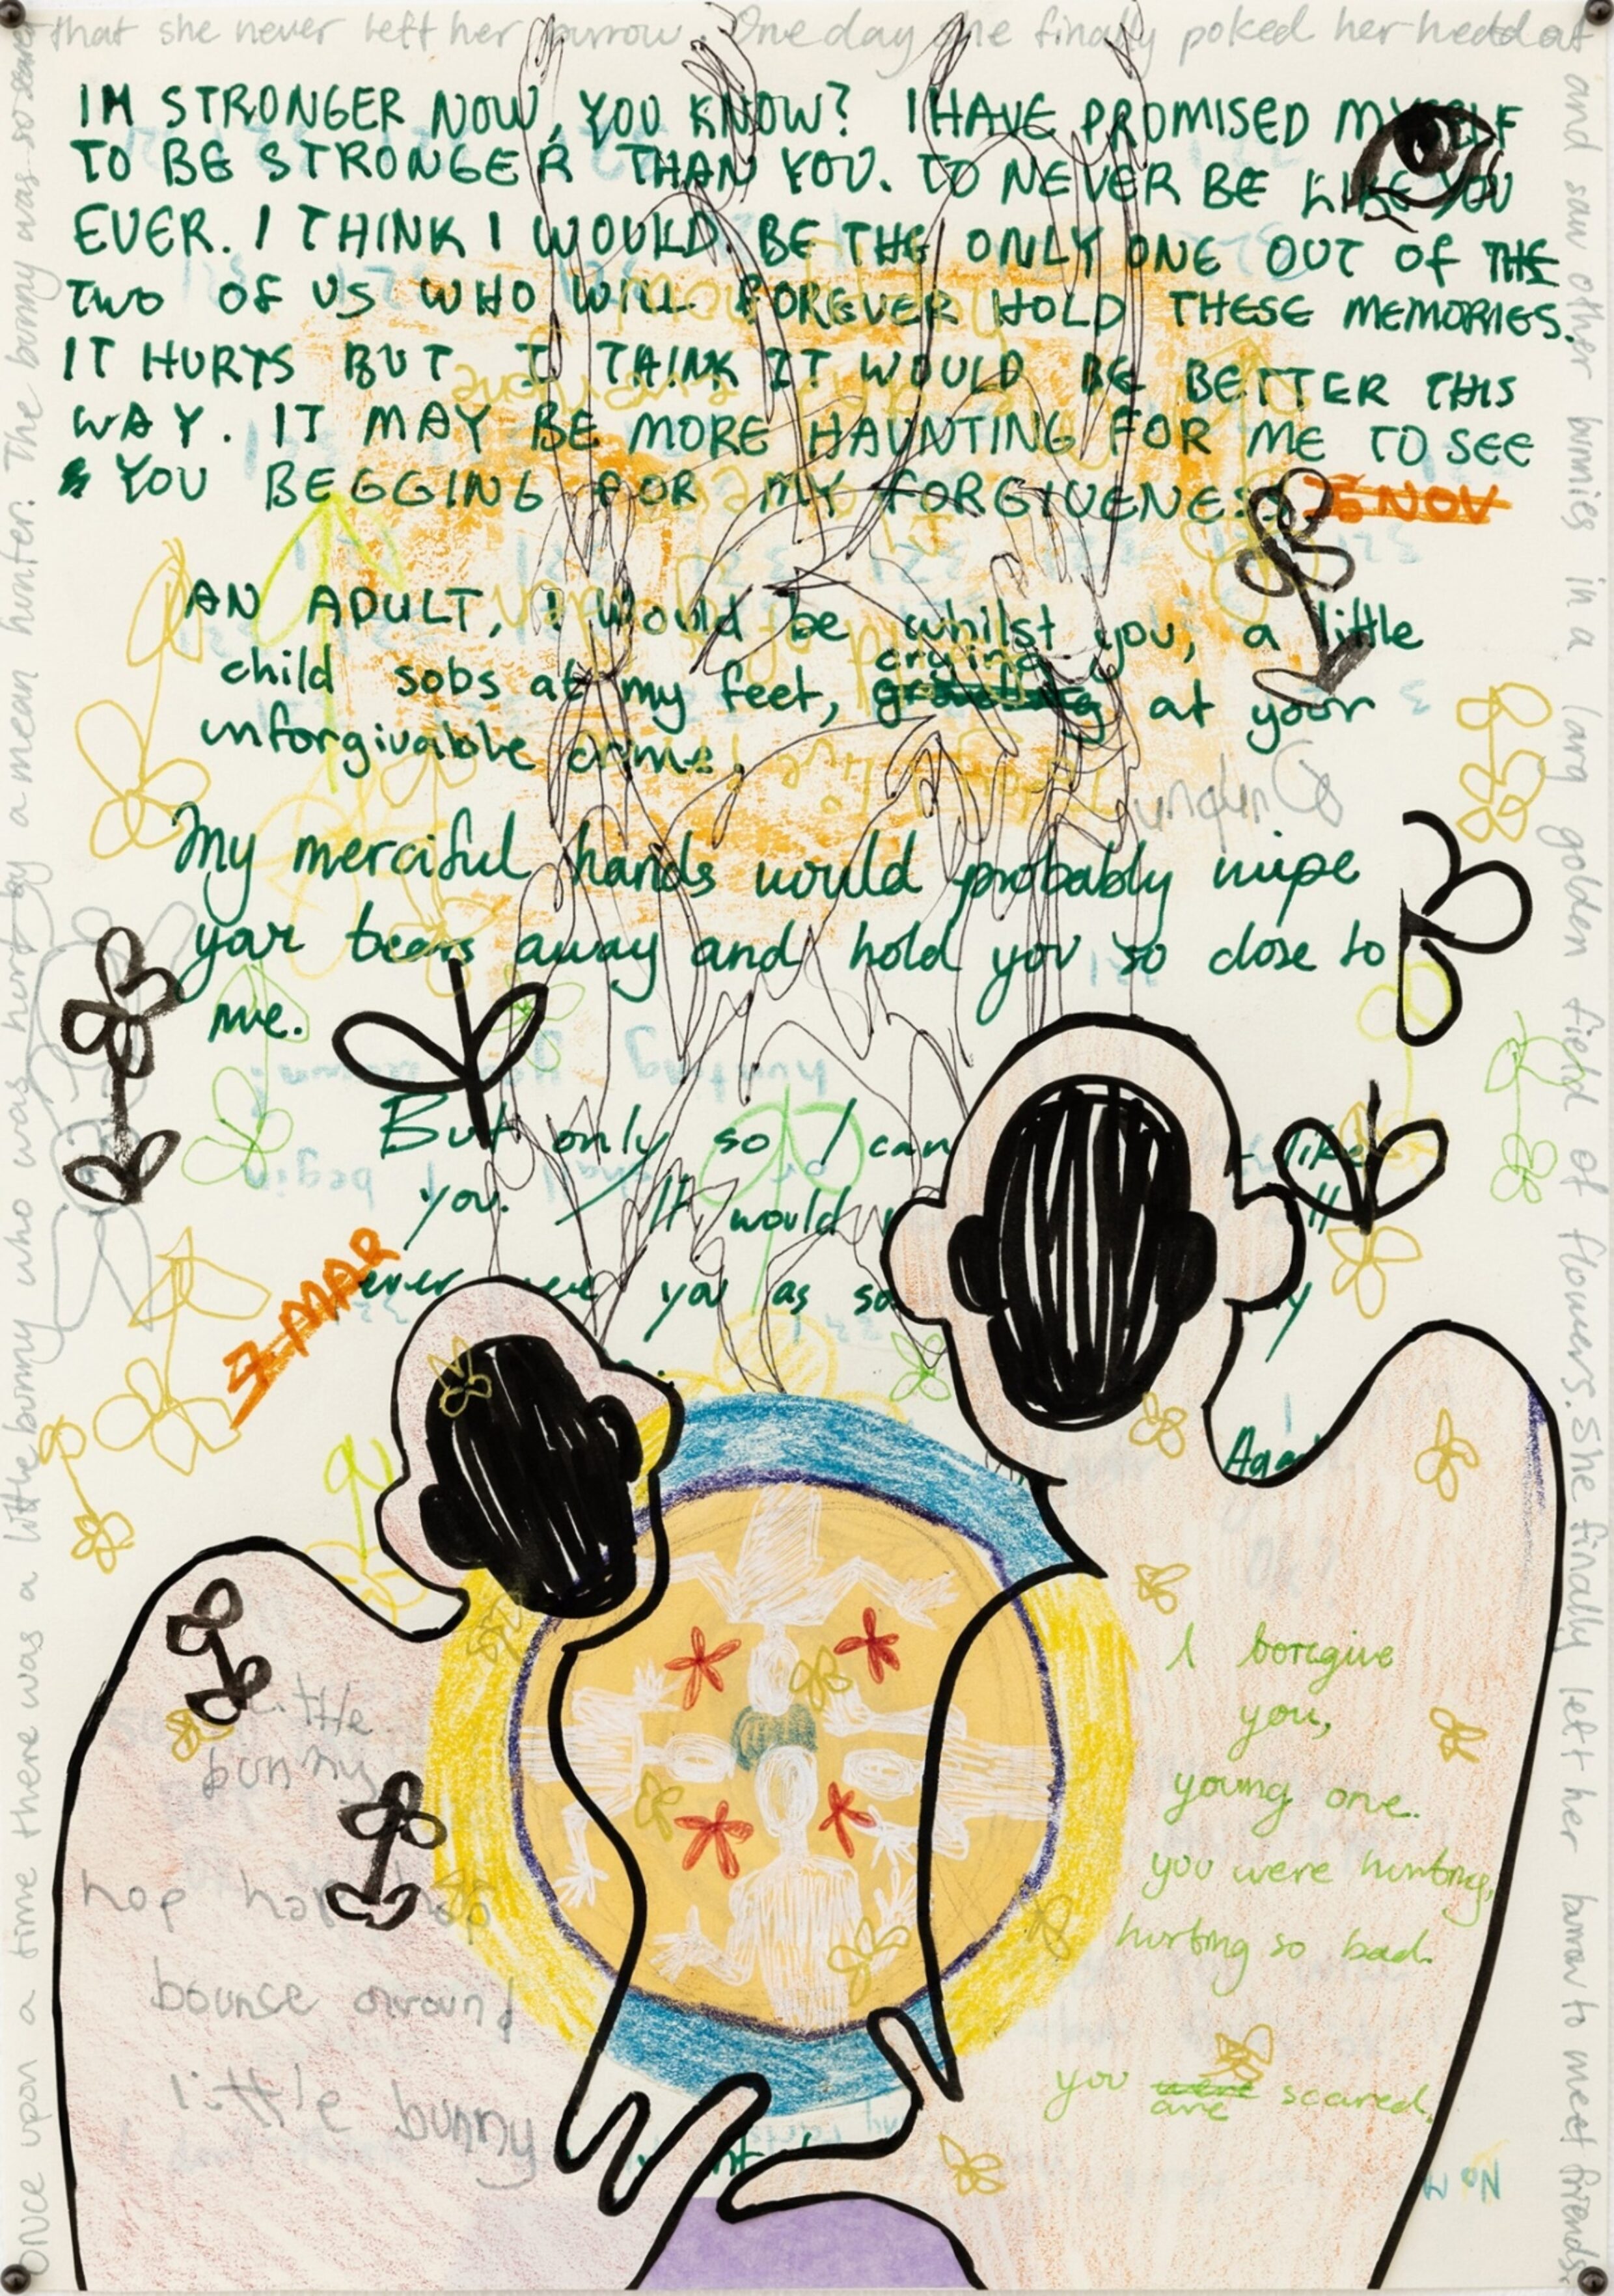 Once upon a time there was a little bunny who was hurt by a mean hunter. The bunny was so
that she never left her burrow. One day she finally poked her head out
and saw other bunnies in a larg golden field of flowers. She finally left her burrow to meet friends
IM STRONGER NOW, YOU KNOW? I HAVE PROMISED MYSELF
TO BE STRONGER THAN YOU. TO NEVER BE LIKE YOU
EVER. I THINK I WOULD BE THE ONLY ONE OUT OF THE
TWO OF US WHO WILL FOREVER HOLD THESE MEMORIES.
IT HURTS BUT I THINK IT WOULD BE BETTER THIS
WAY. IT MAY BE MORE HAUNTING FOR ME TO SEE
YOU BEGGING FOR MY FORGIVENESS
NOV
AN ADULT, I would be whilst you, a little
child sobs at my feet, crying at your
unforgivable crime.
My merciful hands would probably wipe
your tears away and hold you so close to
me.
But only so I can like
you. It would
ever you as so
MAR
I foregive
you,
young one.
you were hurting,
hurting so bad.
you were are scared.
little
bunny
hop hop hop
bounce around
little bunny